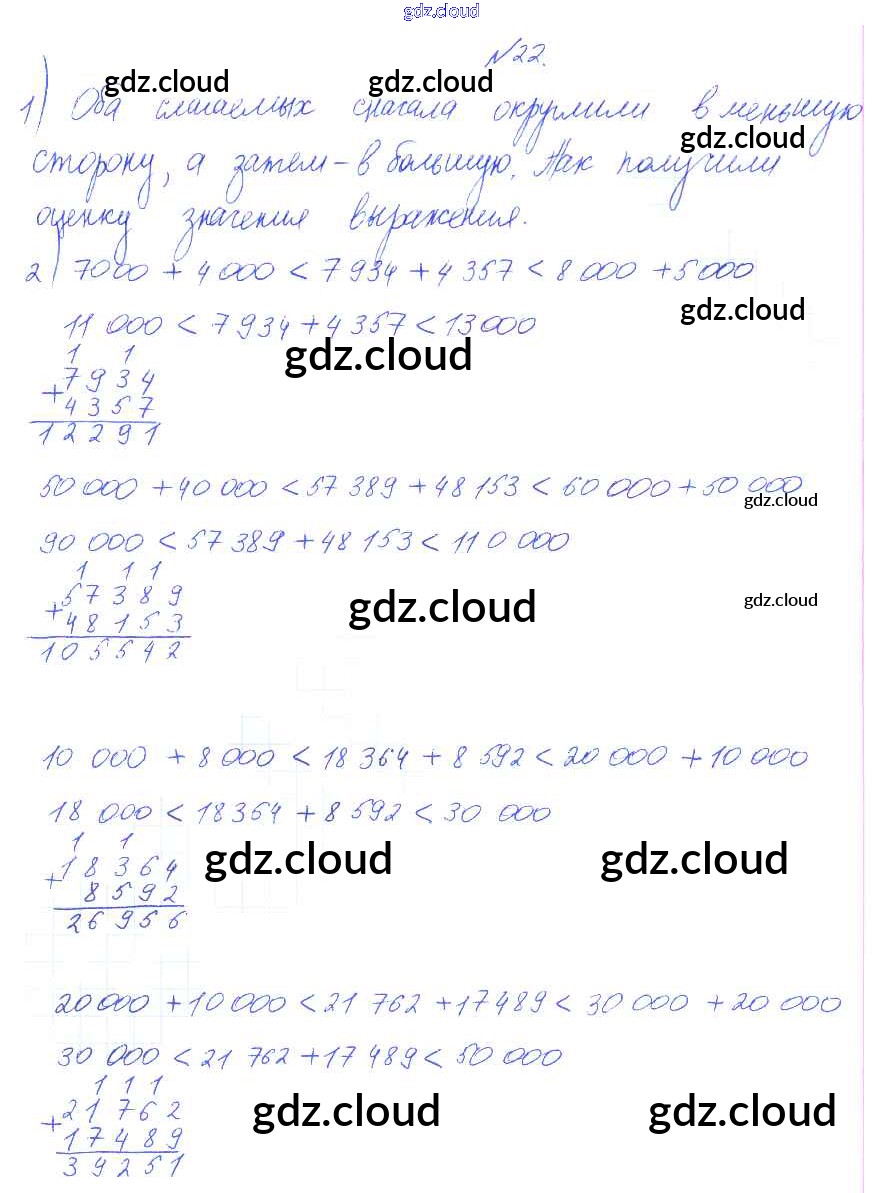 gdz.cloud
№22.
gdz.cloud gdz.cloud
1) Оба слагаемых сначала округлили в меньшую
gdz.cloud
сторону, а затем - в большую. Так получили
оценку значения выражения.
2) 7000 + 4 000 < 7 934 + 4 357 < 8 000 + 5 000
gdz.cloud
11 000 < 7 934 + 4 357 < 13 000
gdz.cloud
1 1
7 9 3 4
+
4 3 5 7
1 2 2 9 1
50 000 + 40 000 < 57 389 + 48 153 < 60 000 + 50 000
gdz.cloud
90 000 < 57 389 + 48 153 < 110 000
1 1 1
5 7 3 8 9
gdz.cloud gdz.cloud
+
4 8 1 5 3
1 0 5 5 4 2
10 000 + 8 000 < 18 364 + 8 592 < 20 000 + 10 000
18 000 < 18 364 + 8 592 < 30 000
1 1
1 8 3 6 4
gdz.cloud gdz.cloud
+
8 5 9 2
2 6 9 5 6
20 000 + 10 000 < 21 762 + 17 489 < 30 000 + 20 000
30 000 < 21 762 + 17 489 < 50 000
1 1 1
2 1 7 6 2
gdz.cloud gdz.cloud
+
1 7 4 8 9
3 9 2 5 1